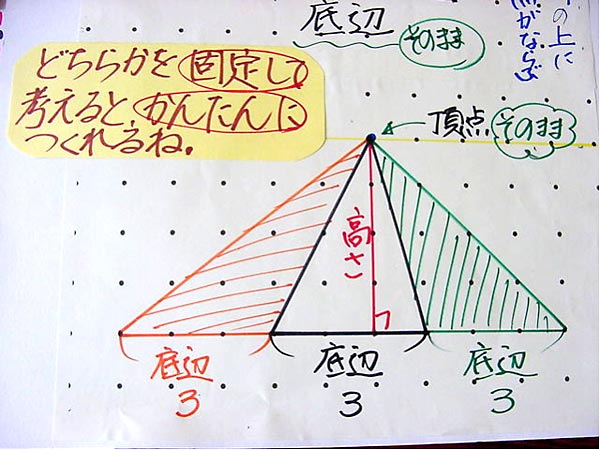 底辺 そのまま
の上に
点がならぶ
どちらかを固定して
考えると、かんたんに
つくれるね。
頂点 そのまま
高さ
底辺 底辺 底辺
3 3 3